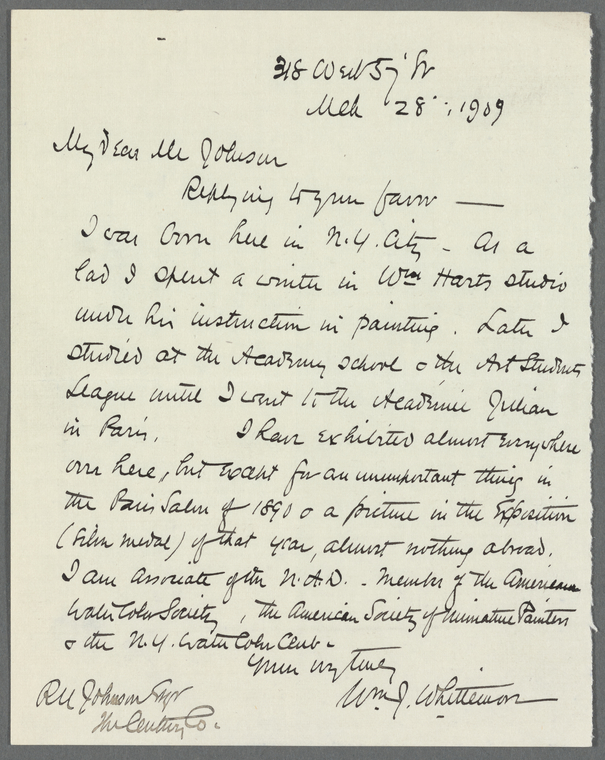 318 West 57 St
Mch 28", 1909
My Dear Mr Johnson
Replying to your favor —
I was born here in N.Y. City – As a
lad I spent a winter in Wm Harts studio
under his instruction in painting. Later I
studied at the Academy school & the Art Students
League until I went to the Academie Julian
in Paris. I have exhibited almost everywhere
over here, but except for an unimportant thing in
the Paris Salon of 1890 & a picture in the Exposition
(Silver medal) of that year, almost nothing abroad.
I am associate of the N.A.D. – member of the American
Water Color Society, the American Society of Miniature Painters
& the N.Y. Water Color Club –
Yours very truly
Wm. J. Whittemore
R U Johnson Esqr
The Century Co.